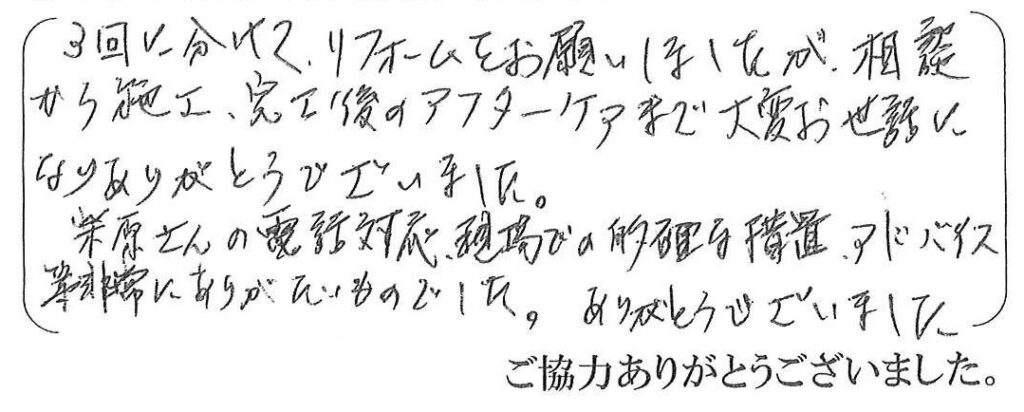 3回に分けて、リフォームをお願いしましたが、相談
から施工、完工後のアフターケアまで大変お世話に
なりありがとうございました。
柴原さんの電話対応、現場での的確な措置、アドバイス
等非常にありがたいものでした。ありがとうございました
ご協力ありがとうございました。